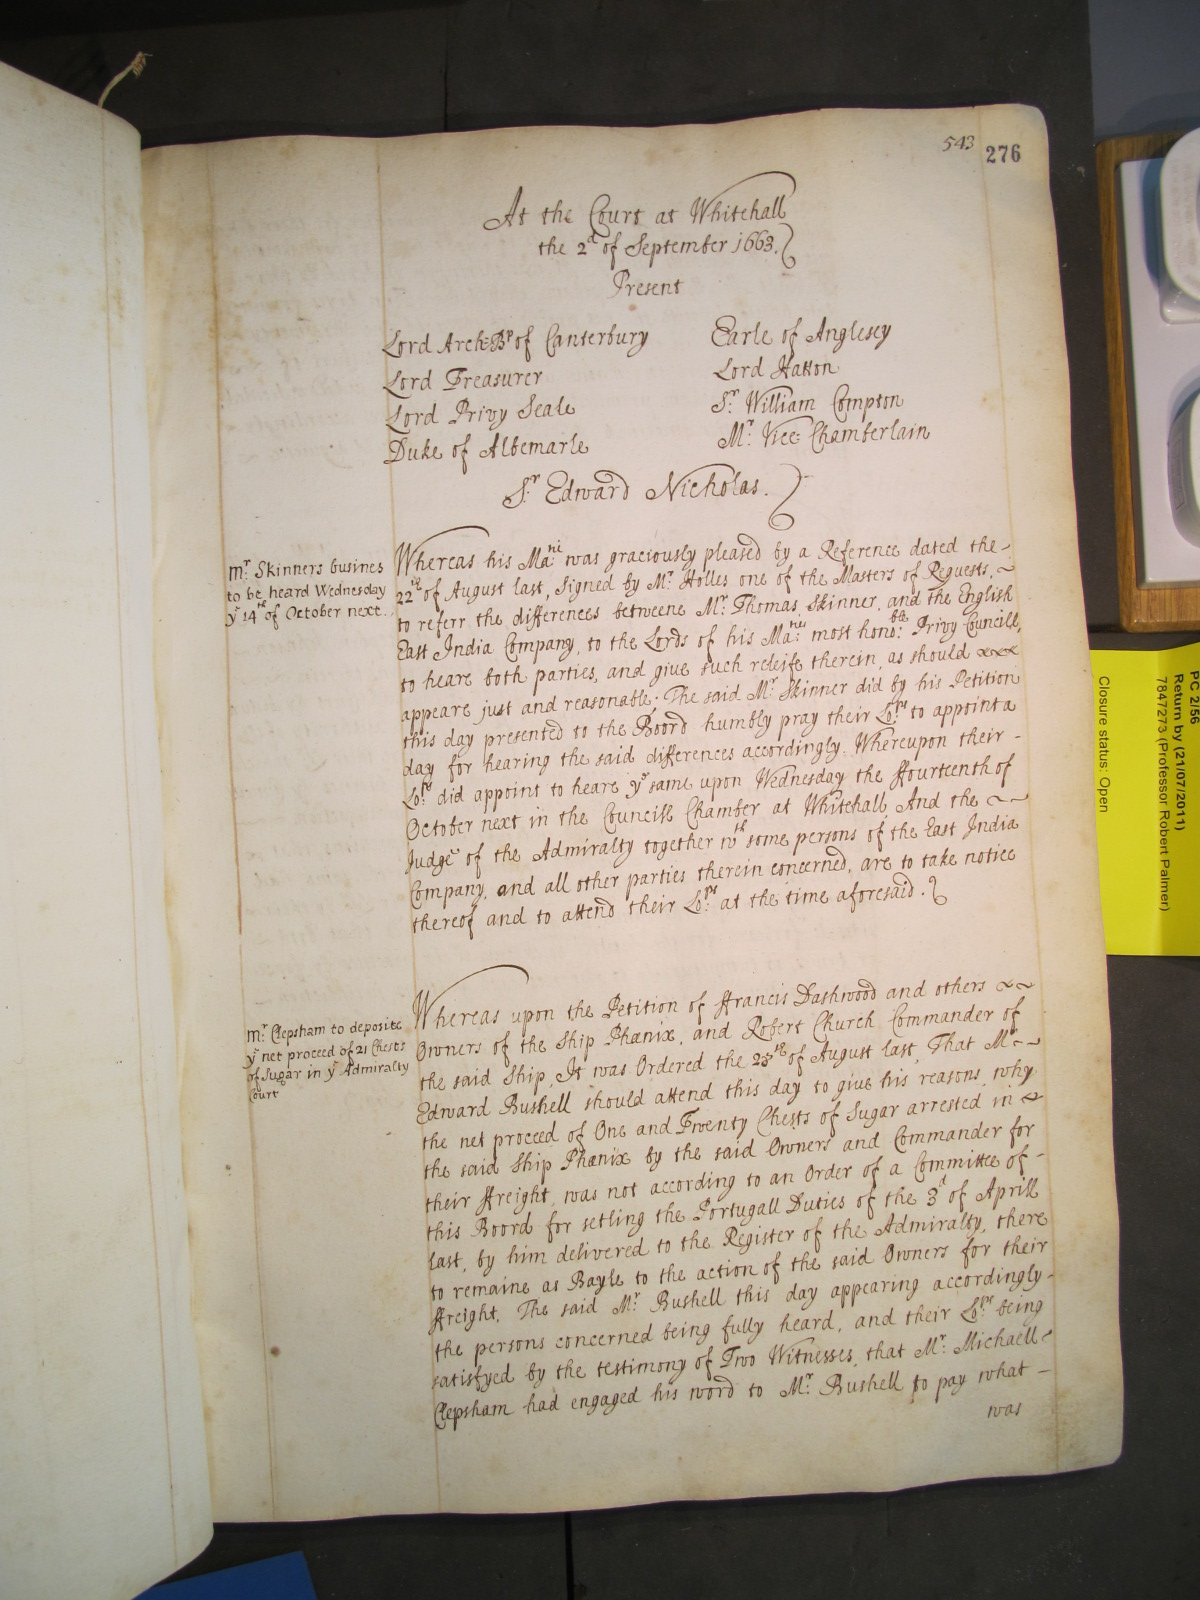 543 276
At the Court at Whitehall
the 2d of September 1663.
Present
Lord Arch:Bp of Canterbury
Lord Treasurer
Lord Privy Seale
Duke of Albemarle
Earle of Anglesey
Lord Hatton
Sr. William Compton
Mr. Vice Chamberlain
Sr. Edward Nicholas.
mr. Skinners busines
to be heard Wednesday
ye 14th of October next.
Whereas his Ma:tie was graciously pleased by a Reference dated the
22th of August last, signed by Mr. Holles one of the Masters of Requests,
to referr the differences betweene Mr. Thomas Skinner, and the English
East India Company, to the Lords of his Ma:ties most hono:ble Privy Councill,
to heare both parties, and give such releife therein, as should
appeare just and reasonable; The said Mr. Skinner did by his Petition
this day presented to the Boord humbly pray their Lo:ps to appoint a
day for hearing the said differences accordingly. Whereupon their
Lo:ps did appoint to heare ye same upon Wednesday the ffourteenth of
October next in the Councill Chamber at Whitehall, And the
Judge of the Admiralty together wth some persons of the East India
Company, and all other parties therein concerned, are to take notice
thereof and to attend their Lo:ps at the time aforesaid.
mr. Clepsham to deposite
ye net proceed of 21 Chests
of Sugar in ye Admiralty
Court
Whereas upon the Petition of ffrancis Dashwood and others
Owners of the Ship Phænix, and Robert Church Commander of
the said Ship, It was Ordered the 23th of August last, That Mr.
Edward Bushell should attend this day to give his reasons, why
the net proceed of One and Twenty Chests of Sugar arrested in
the said Ship Phænix by the said Owners and Commander for
their ffreight, was not according to an Order of a Committee of
this Boord for setling the Portugall Duties of the 3d of Aprill
last, by him delivered to the Register of the Admiralty, there
to remaine as Bayle to the action of the said Owners for their
ffreight, The said Mr. Bushell this day appearing accordingly
the persons concerned being fully heard, and their Lo:ps being
satisfyed by the testimony of Two Witnesses, that Mr. Michaell
Clepsham had engaged his word to Mr. Bushell to pay what
was
PC 2/56
Return by (21/07/2011)
7847273 (Professor Robert Palmer)
Closure status: Open